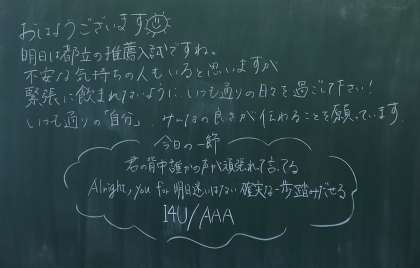 おはようございます
明日は都立の推薦入試ですね。
不安な気持ちの人もいると思いますが
緊張に飲まれないように、いつも通りの日々を過ごして下さい!
いつも通りの「自分」、の良さが伝わることを願っています。
今日の一節
君の背中誰かの声が頑張れって言ってる
Alright, you for 明日迷いはない 確実な一歩踏みだせる
I4U/AAA